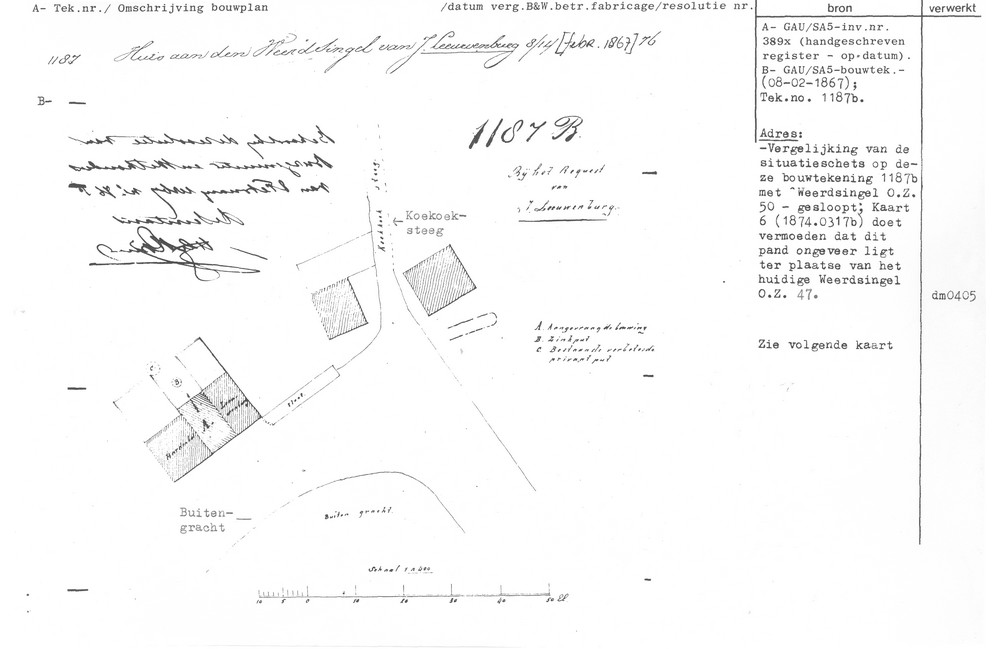 A- Tek.nr./ Omschrijving bouwplan
/datum verg.B&W.betr.fabricage/resolutie nr.
bron
verwerkt
1187
Huis aan den Weerdsingel van J. Leeuwenburg 8/14 [febr. 1867] 76
A- GAU/SA5-inv.nr.
389x (handgeschreven
register - op datum).
B- GAU/SA5-bouwtek.-
(08-02-1867);
Tek.no. 1187b.
Adres:
-Vergelijking van de
situatieschets op de-
ze bouwtekening 1187b
met Weerdsingel O.Z.
50 - gesloopt; Kaart
6 (1874.0317b) doet
vermoeden dat dit
pand ongeveer ligt
ter plaatse van het
huidige Weerdsingel
O.Z. 47.
dm0405
Zie volgende kaart
B-
1187 B.
Bij het Request
van
J. Leeuwenburg.
Behoort bij de resolutie van
Burgemeester en Wethouders
van
De Secretaris
Koekoek steeg
Koekoek-
steeg
A. Aangevraagde bouwing
B. Zinkput
C Bestaande verbeterde
privaatput
C
B
A.
sloot
Buiten-
gracht
Buiten gracht.
Schaal
10 5 0 10 20 30 40 50 El